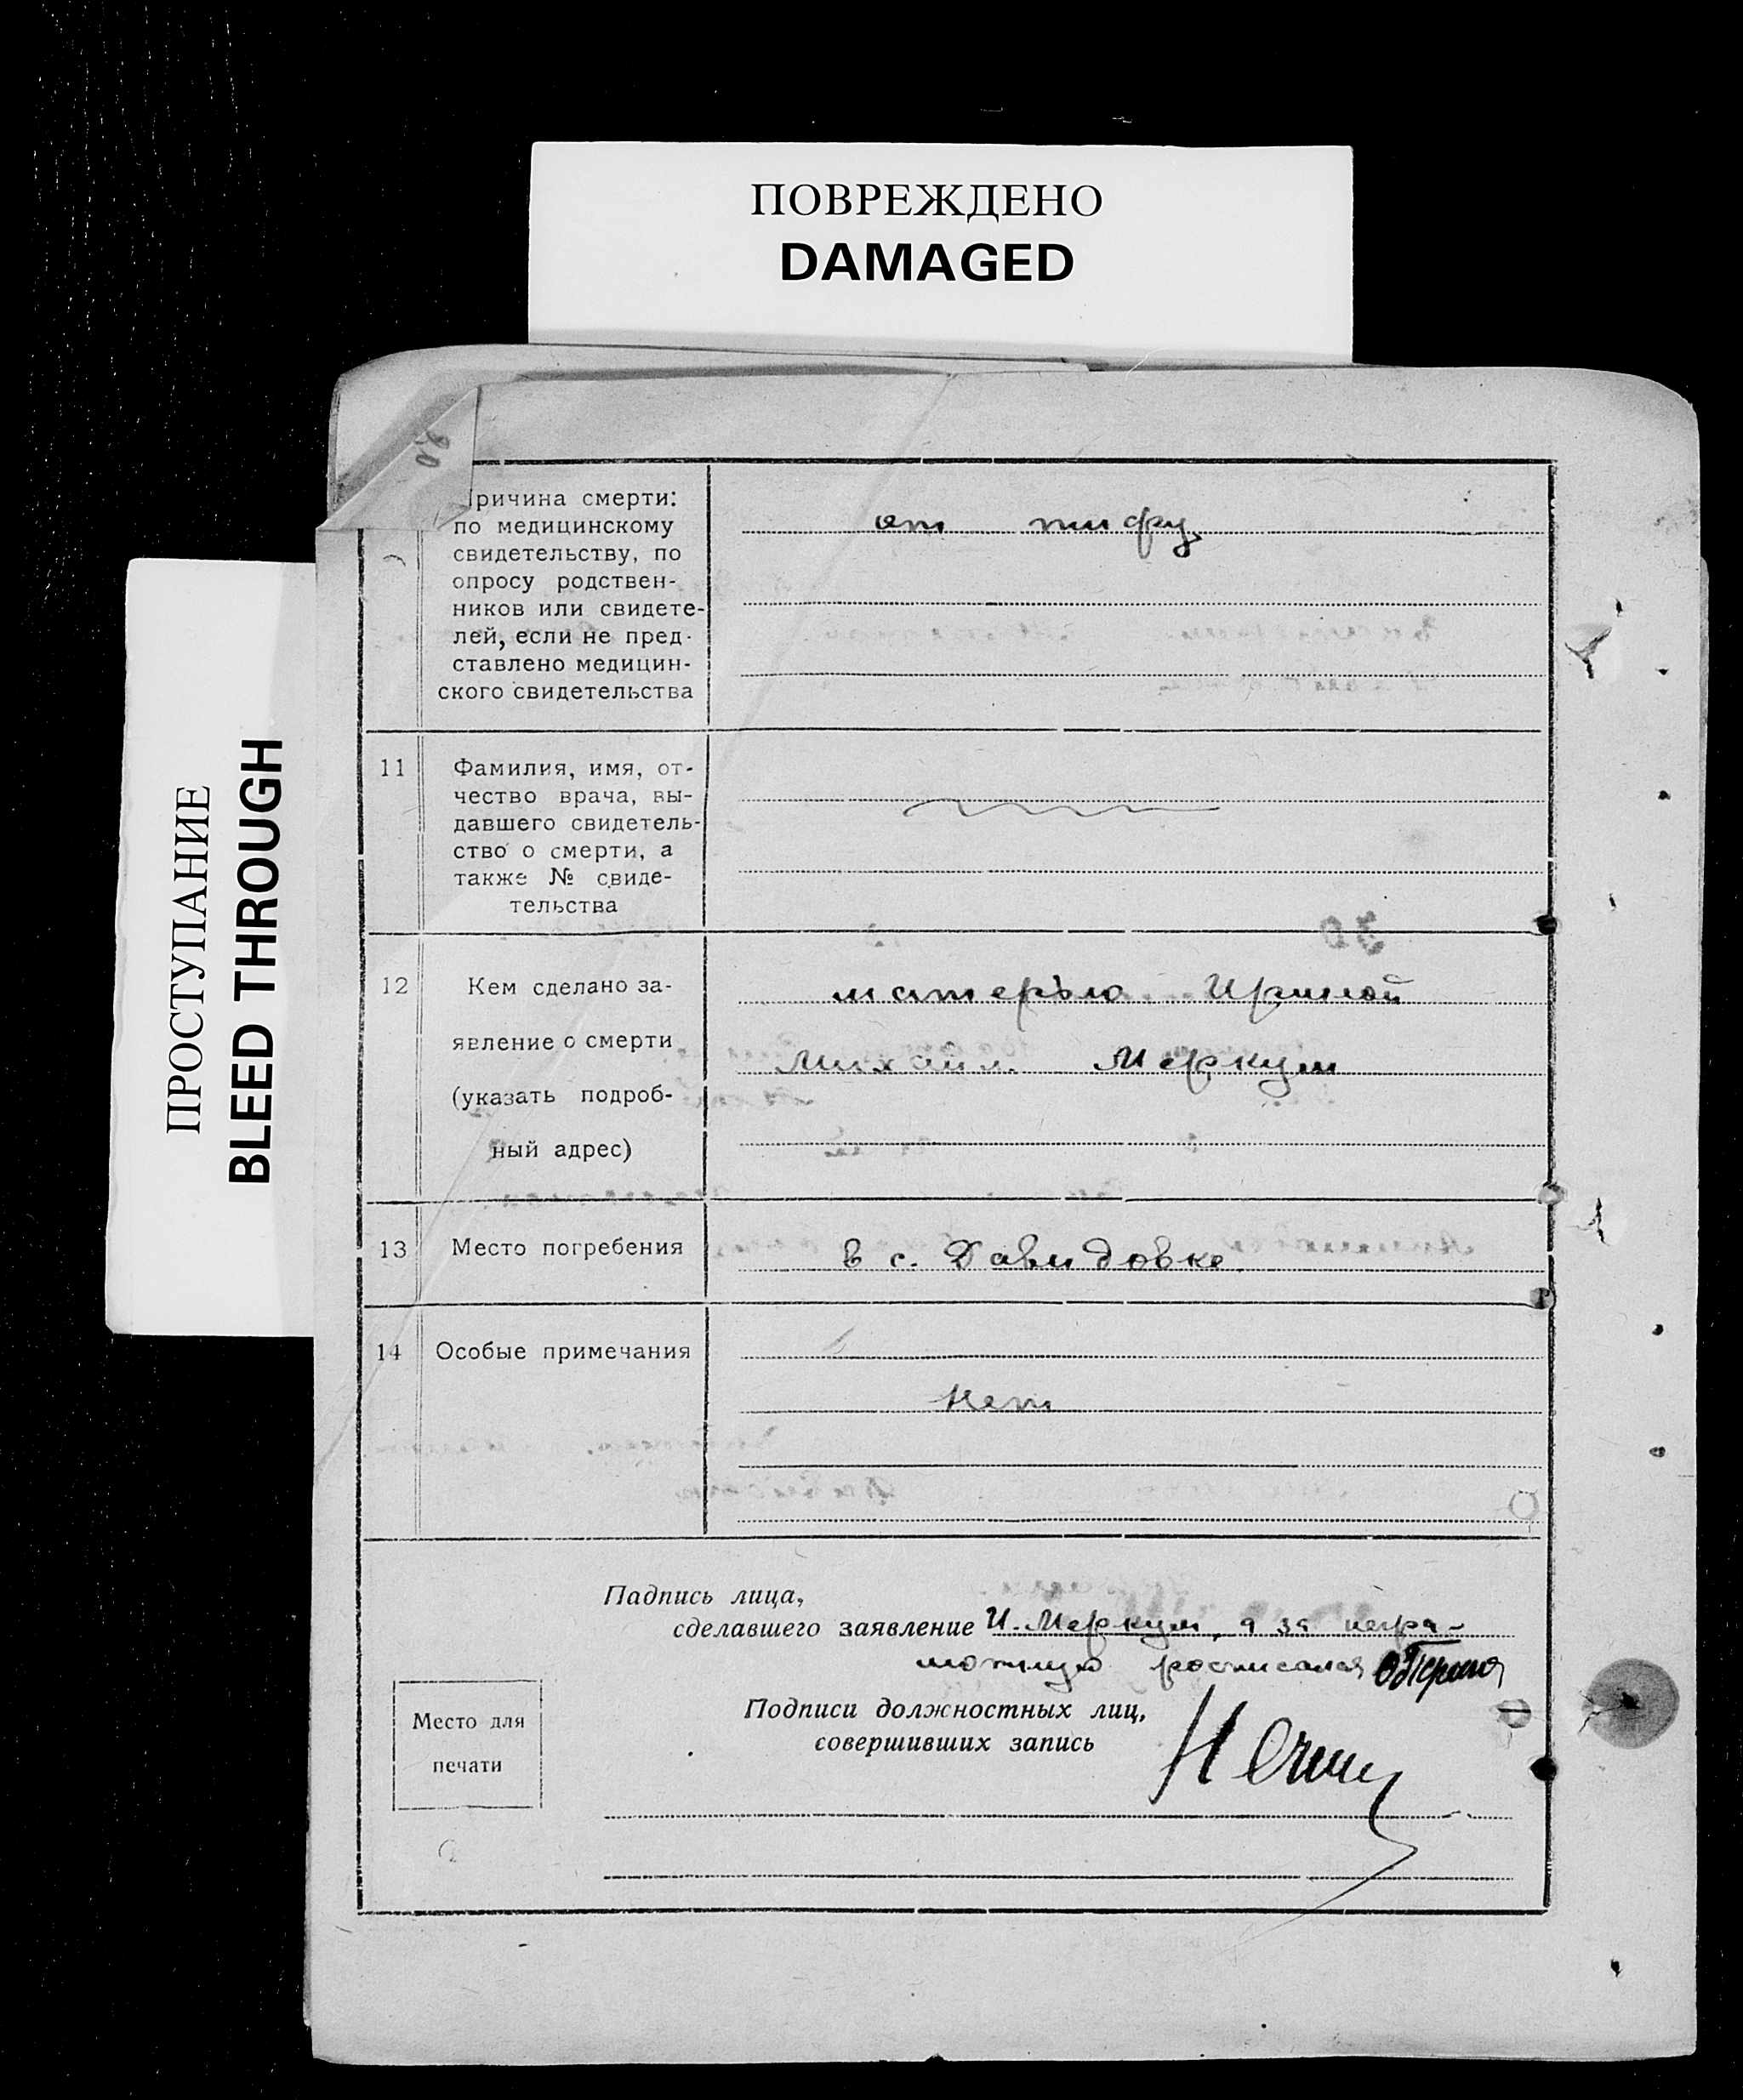 ПОВРЕЖДЕНО
DAMAGED
ПРОСТУПАНИЕ
BLEED THROUGH
ричина смерти:
по медицинскому
свидетельству, по
опросу родствен-
ников или свидете-
лей, если не пред-
ставлено медицин-
ского свидетельства
от тифу
11
Фамилия, имя, от-
чество врача, вы-
давшего свидетель-
ство о смерти, а
также № свиде-
тельства
30
12
Кем сделано за-
явление о смерти
(указать подроб-
ный адрес)
матерью Ириной
Михайл. Меркут
13
Место погребения
в с. Давидовке
14
Особые примечания
нет
Падпись лица,
сделавшего заявление И. Меркут, а за негра-
мотную росписалася
Подписи должностных лиц,
совершивших запись
Место для
печати